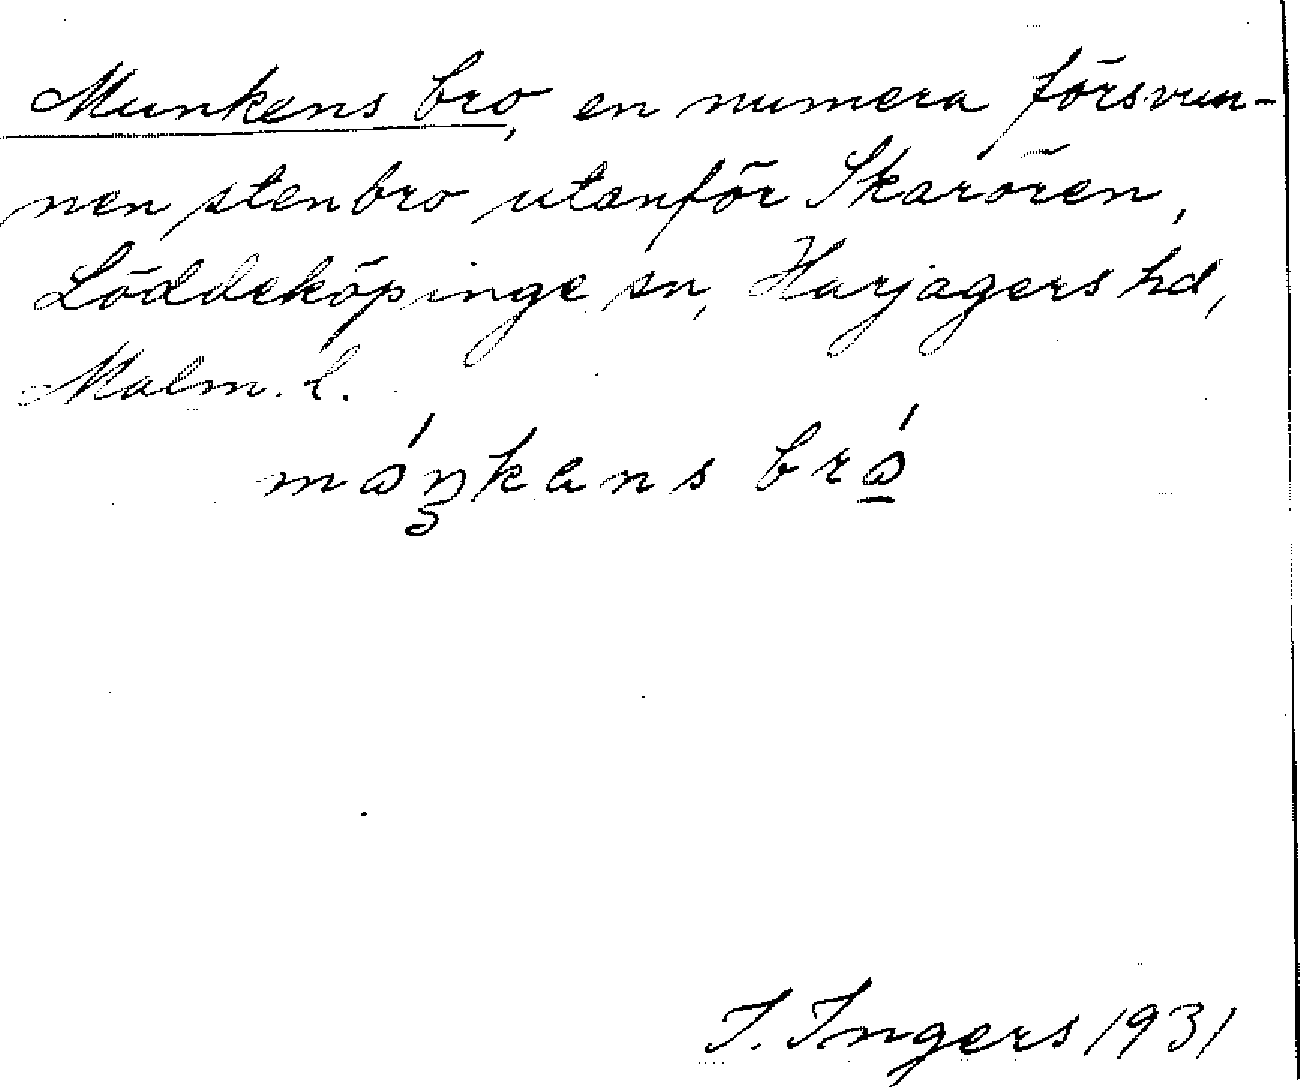 Munkens bro, en numera försvun-
nen stenbro utanför Skarören,
Löddeköpinge sn, Harjagers hd,
Malm. l.
móŋkens bró
I. Ingers 1931